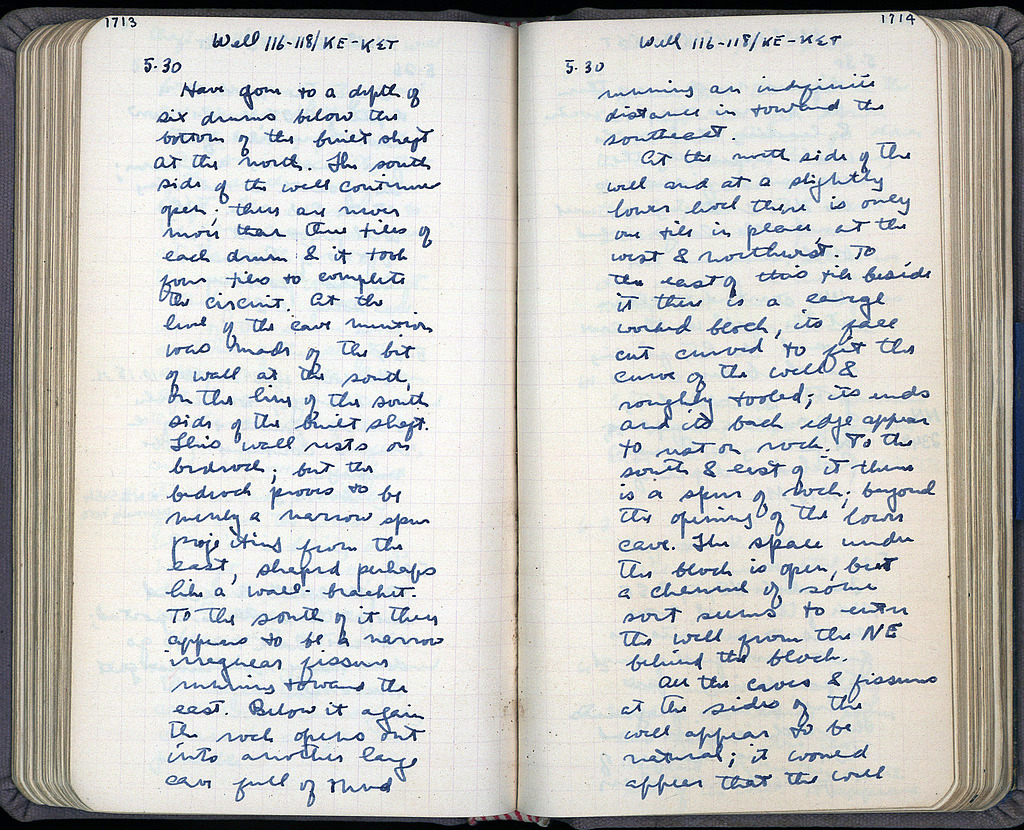 1713
Well 116-118/KE-KST
5.30
Have gone to a depth of
six drums below the
bottom of the built shaft
at the north. The south
side of the well continues
open; there are never
more than three tiles of
each drum & it took
four tiles to complete
the circuit. At the
level of the cave mention
was made of the bit
of wall at the south,
on the line of the south
side of the built shaft.
This wall rests on
bedrock; but the
bedrock proves to be
merely a narrow spur
projecting from the
east, shaped perhaps
like a wall-bracket.
To the south of it there
appears to be a narrow
irregular fissure
running toward the
east. Below it again
the rock opens out
into another large
cave full of mud
1714
Well 116-118/KE-KST
5.30
running an indefinite
distance in toward the
southeast.
At the north side of the
well and at a slightly
lower level there is only
one tile in place, at the
west & northwest. To
the east of this tile beside
it there is a large
worked block, its face
cut curved to fit the
curve of the well &
roughly tooled; its ends
and its back edge appear
to rest on rock. To the
south & east of it there
is a spur of rock, beyond
the opening of the lower
cave. The space under
the block is open, but
a channel of some
sort seems to enter
the well from the NE
behind the block.
All the caves & fissures
at the sides of the
well appear to be
natural; it would
appear that the well